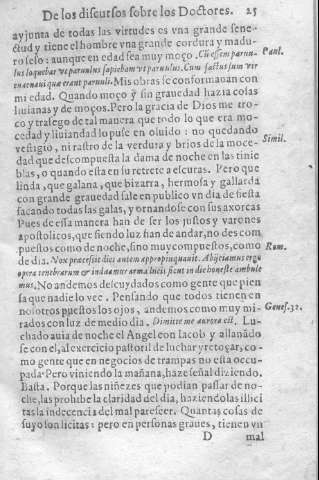 De los discursos sobre los Doctores. 25
ay junta de todas las virtudes es vna grande sene-
ctud y tiene el hombre vna grande cordura y madu-
ro seso: aunque en edad sea muy moço. Cū essem paruu- Paul.
lus loquebar vt paruulus sapiebam vt paruulus. Cum factus sum vir
euacuaui qua erant paruuli. Mis obras se conformauan con
mi edad. Quando moço y sin grauedad hazia cosas
liuianas y de moços. Pero la gracia de Dios me tro-
co y trasego de tal manera que todo lo que era mo-
cedad y liuiandad lo puse en oluido: no quedando
vestigio, ni rastro de la verdura y brios de la moce- Simil.
dad que descompuesta la dama de noche en las tinie
blas, o quando esta en su retrete a escuras. Pero que
linda, que galana, que bizarra, hermosa y gallarda
con grande grauedad sale en publico vn dia de fiesta
sacando todas las galas, y ornandose con sus axorcas
Pues de essa manera han de ser los justos y varones
apostolicos, que siendo luz han de andar, no des com
puestos como de noche, sino muy compuestos, como
de dia. Nox præcessit dies autem appropinquauit. Abijciamus ergo Rom.
opera tenebrarum & induamur arma lucis sicut in die honeste ambule
mus. No andemos descuydados como gente que pien
sa que nadie lo vee. Pensando que todos tienen en
nosotros puestos los ojos, andemos como muy mi- Genes. 32.
rados con luz de medio dia. Dimitte me aurora est. Lu-
chado auia de noche el Angel con Iacob y allanādo
se con el, al exercicio pastoril de luchar y retoçar, co-
mo gente que en negocios de trampas no esta occu-
pada. Pero viniendo la mañana, haze señal diziendo.
Basta. Porque las niñezes que podian passar de no-
che, las prohibe la claridad del dia, haziendolas illici
tas la indecencia del mal parescer. Quantas cosas de
suyo son licitas: pero en personas graues, tienen vn
D mal